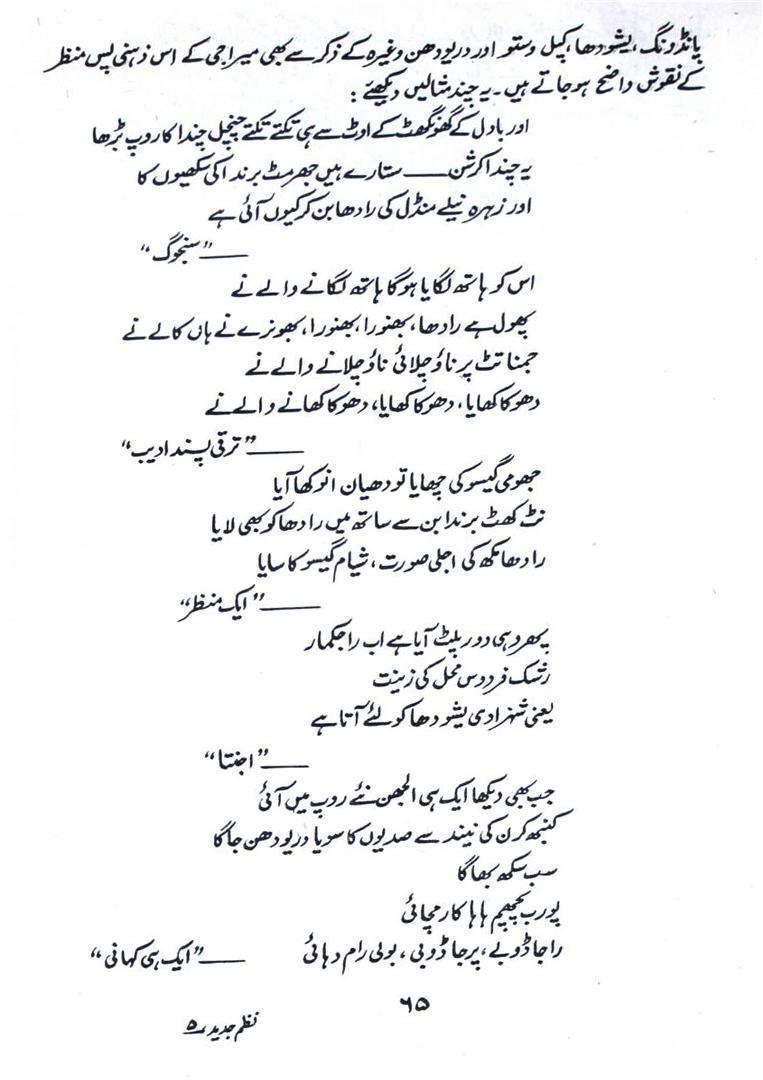 پانڈورنگ، یشودھا، کپل وستو اور دریودھن وغیرہ کے ذکر سے بھی میراجی کے اس ذہنی پس منظر
کے نقوش واضح ہو جاتے ہیں۔ یہ چند مثالیں دیکھئے :
اور بادل کے گھونگھٹ کے اوٹ سے ہی تکتے تکتے چنچل چندا کا روپ بڑھا
یہ چندا کرشن —— ستارے ہیں جھرمٹ برندا کی سکھیوں کا
اور زہرہ نیلے منڈل کی رادھا بن کر کیوں آئی ہے
—— "سنجوگ"
اس کو ہاتھ لگایا ہوگا ہاتھ لگانے والے نے
پھول ہے رادھا، بھنورا، بھنورا، بھونرے نے ہاں کالے نے
جمنا تٹ پر ناؤ چلائی ناؤ چلانے والے نے
دھوکا کھایا، دھوکا کھایا، دھوکا کھانے والے نے
—— "ترقی پسند ادیب"
جھومی گیسو کی چھایا تو دھیان انوکھا آیا
نٹ کھٹ برندابن سے ساتھ میں رادھا کو بھی لایا
رادھا مکھ کی اجلی صورت، شیام گیسو کا سایا
—— "ایک منظر"
پھر وہی دور پلٹ آیا ہے اب راجکمار
رشک فردوس محل کی زینت
یعنی شہزادی یشودھا کو لئے آتا ہے
—— "اجنتا"
جب بھی دیکھا ایک ہی الجھن نئے روپ میں آئی
کنبھ کرن کی نیند سے صدیوں کا سویا دریودھن جاگا
سب سکھ بھاگا
پورب پچھم ہاہا کار مچائی
راجا ڈوبے، پرجا ڈوبی، بولی رام دہائی —— "ایک ہی کہانی"
۶۵
نظم جدید ۵